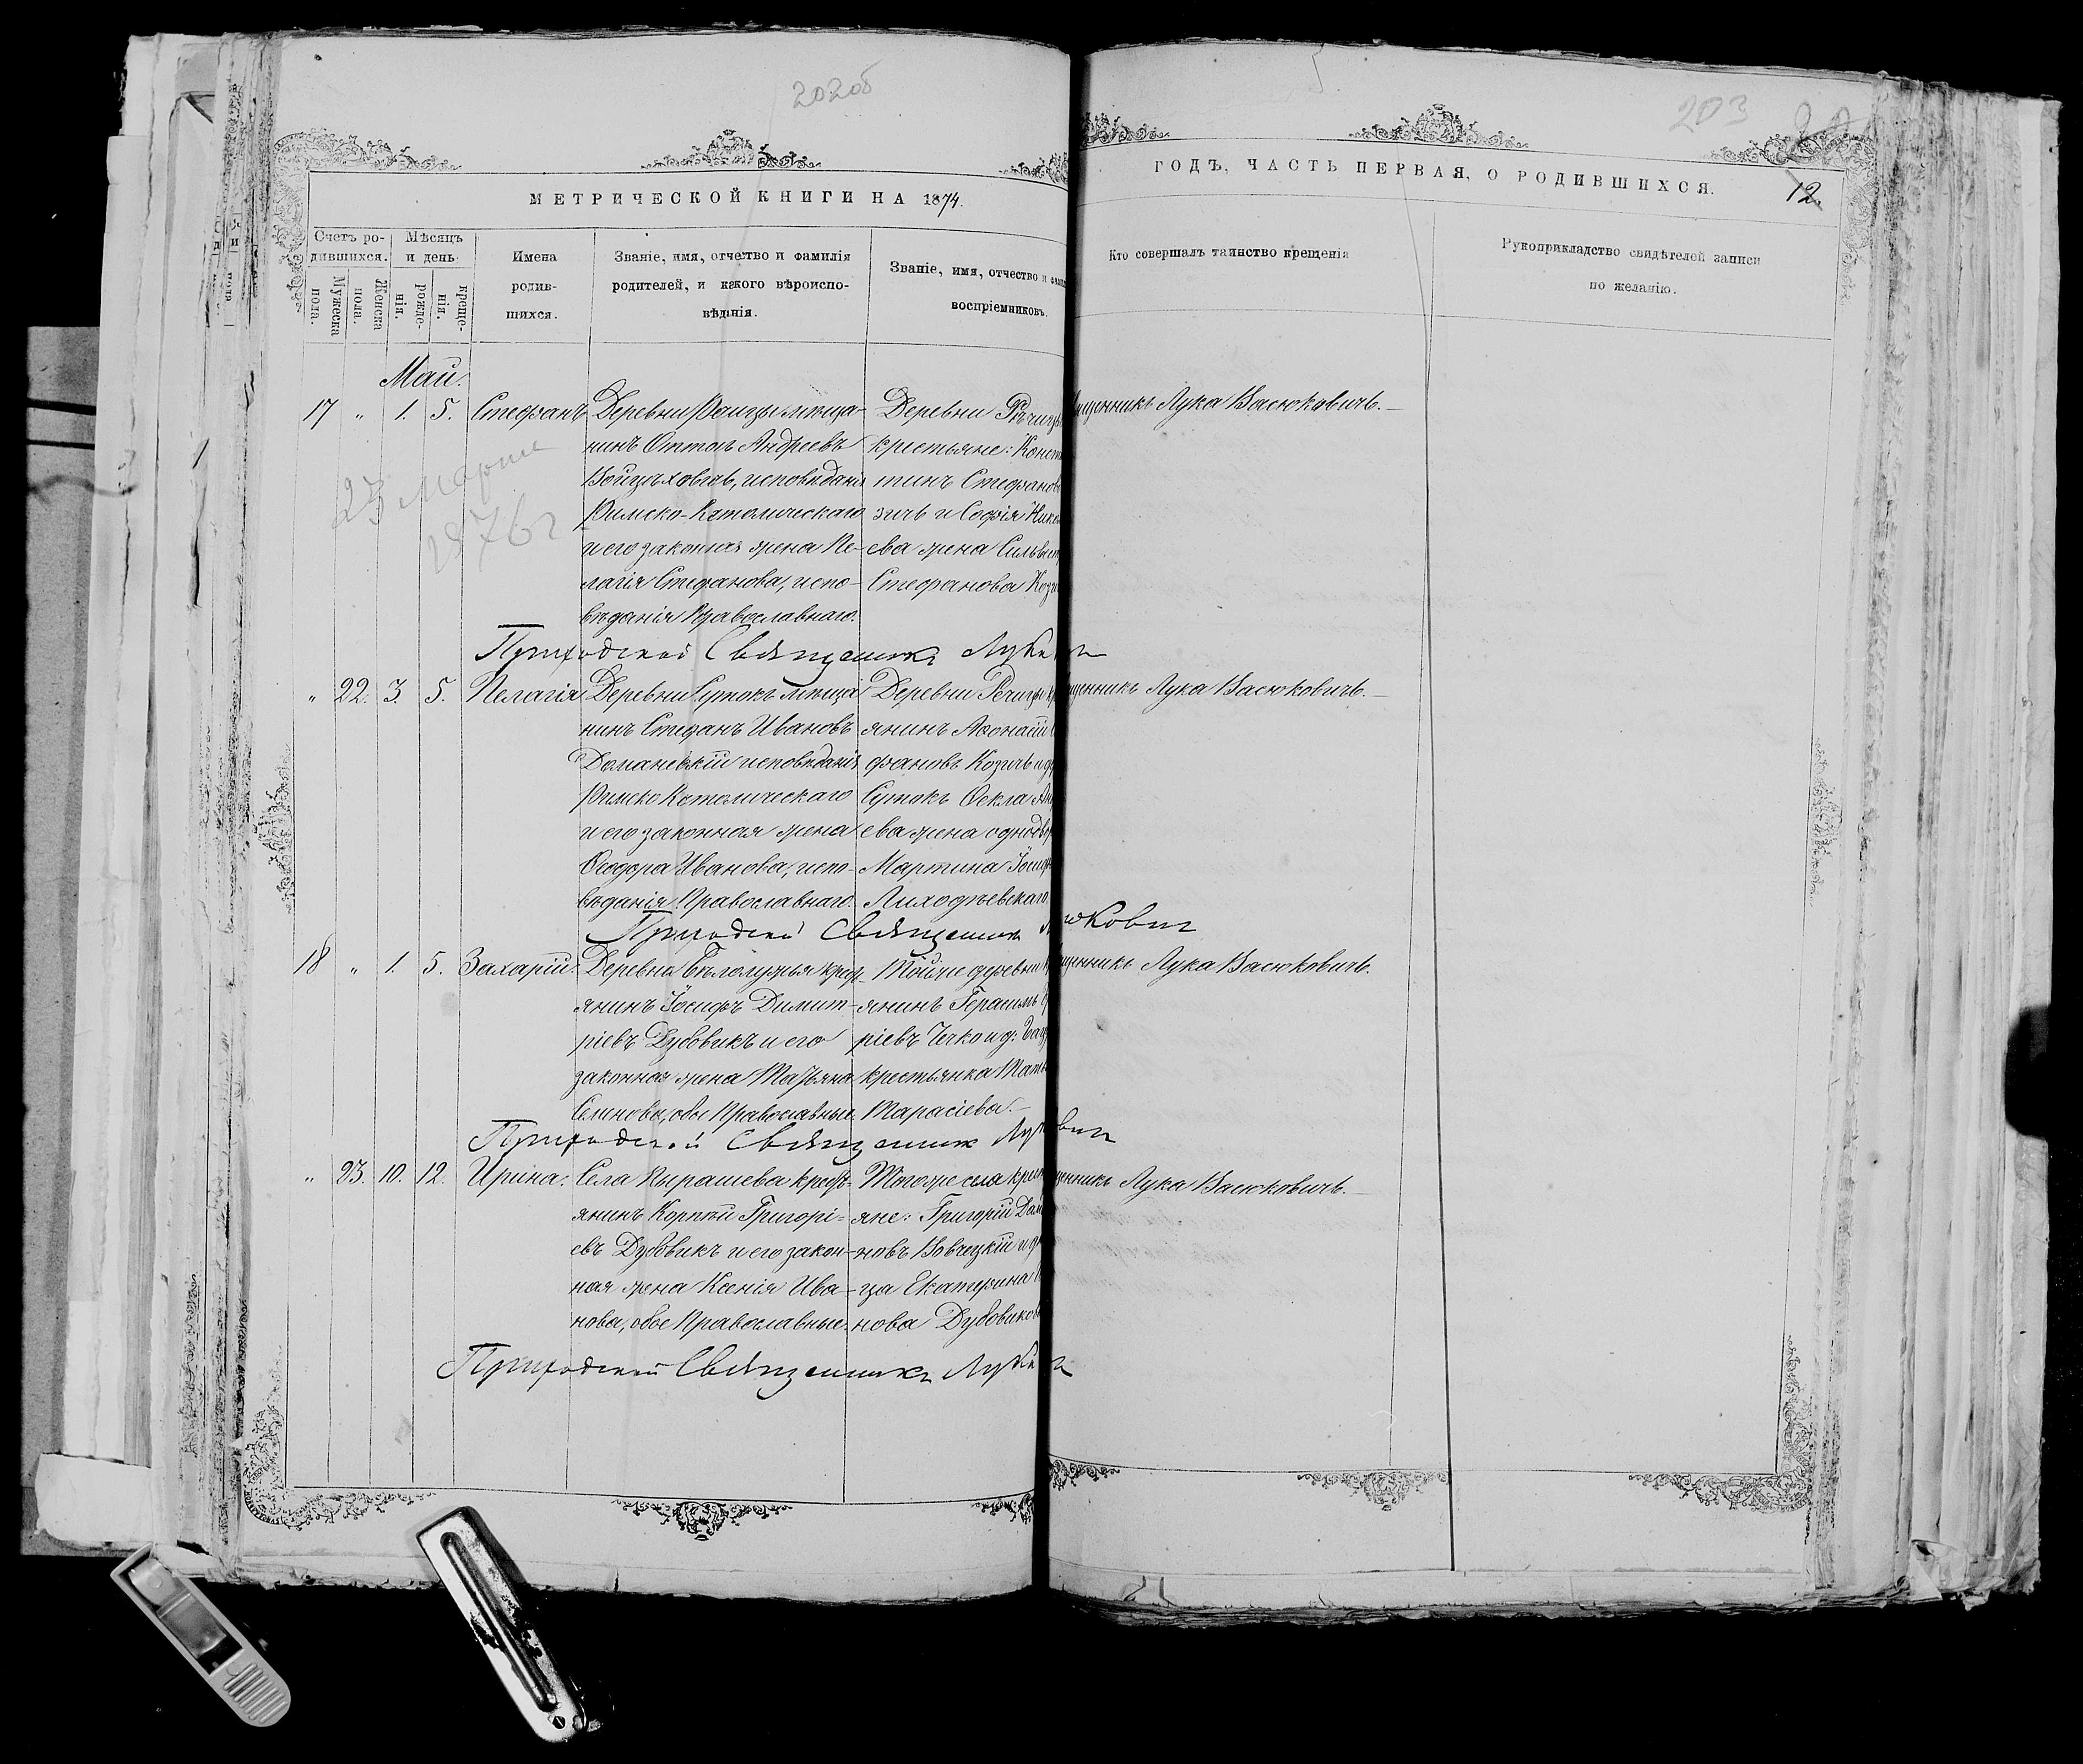 202об
203
МЕТРИЧЕСКОЙ КНИГИ НА 1874.
ГОДЪ, ЧАСТЬ ПЕРВАЯ, О РОДИВШИХСЯ.
12.
Счетъ ро-
дившихся.
Мужеска
пола.
Женска
пола.
Мѣсяцъ
и день
рожде-
нія.
креще-
нія.
Имена
родив-
шихся.
Званіе, имя, отчество и фамилія
родителей, и какого вѣроиспо-
вѣданія.
Званіе, имя, отчество и
воспріемниковъ.
Кто совершалъ таинство крещенія
Рукоприкладство свидѣтелей записи
по желанію.
Май.
17 " 1. 5. Стефанъ
Деревни мѣща-
нинъ Оттонъ Андреевъ
исповѣданія
Римско-Католическаго
и его законная жена Пе-
лагія Стефанова, испо-
вѣданія Православнаго.
Деревни Рѣчицы
крестьяне: Конст
тинъ Стефановъ
зичъ и Софія Никол
ева жена Сильвест
Стефанова Кози
щенникъ Лука Васюковичъ.
23 Марта
1876 г
Приходской Священникъ Лука
" 22. 3. 5. Пелагія
Деревни Сутокъ мѣща
нинъ Стефанъ Ивановъ
Доманскій исповѣданія
Римско Католическаго
и его законная жена
Ѳеодора Иванова, испо-
вѣданія Православнаго.
Деревни Речицы кр
янинъ Аѳонасій
фановъ Козичъ и д
Сутокъ Ѳекла Ан
ева жена однодвор
Мартина Іосиф
Лиходѣевскаго
щенникъ Лука Васюковичъ.
Приходской Священникъ юкович
18 " 1. 5. Захарій.
Деревни Бѣлолужья крест
янинъ Іосифъ Димит-
ріевъ Дубовикъ и его
законная жена Татьяна
Семенова, обое Православные
Той же деревни
янинъ Герасимъ
ріевъ Чечко и д:
крестьянка Тать
Тарасіева.
щенникъ Лука Васюковичъ.
Приходской Священникъ Лук вич
" 23. 10. 12. Ирина.
Села Пырашева кресть-
янинъ Корнѣй Григорі-
евъ Дубовикъ и его закон-
ная жена Ксенія Ива-
нова, обое Православные.
Того же села крест
яне: Григорій Дам
новъ и д
ца Екатерина
нова Дубовиков
щенникъ Лука Васюковичъ.
Приходской Священникъ Лука